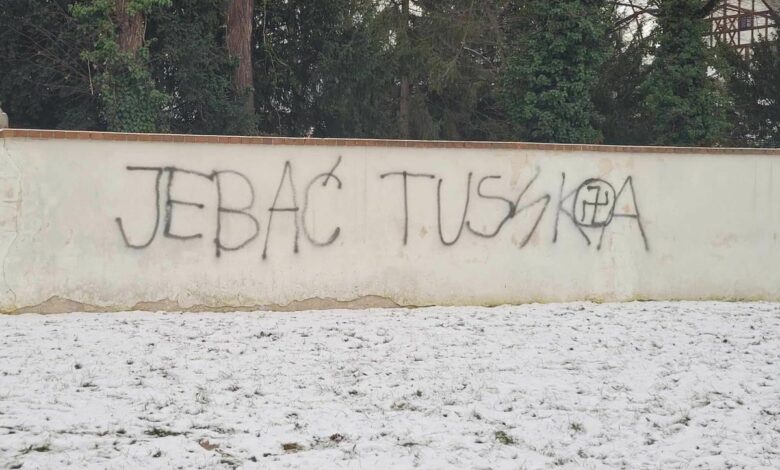 JEBAĆ TUSSKA